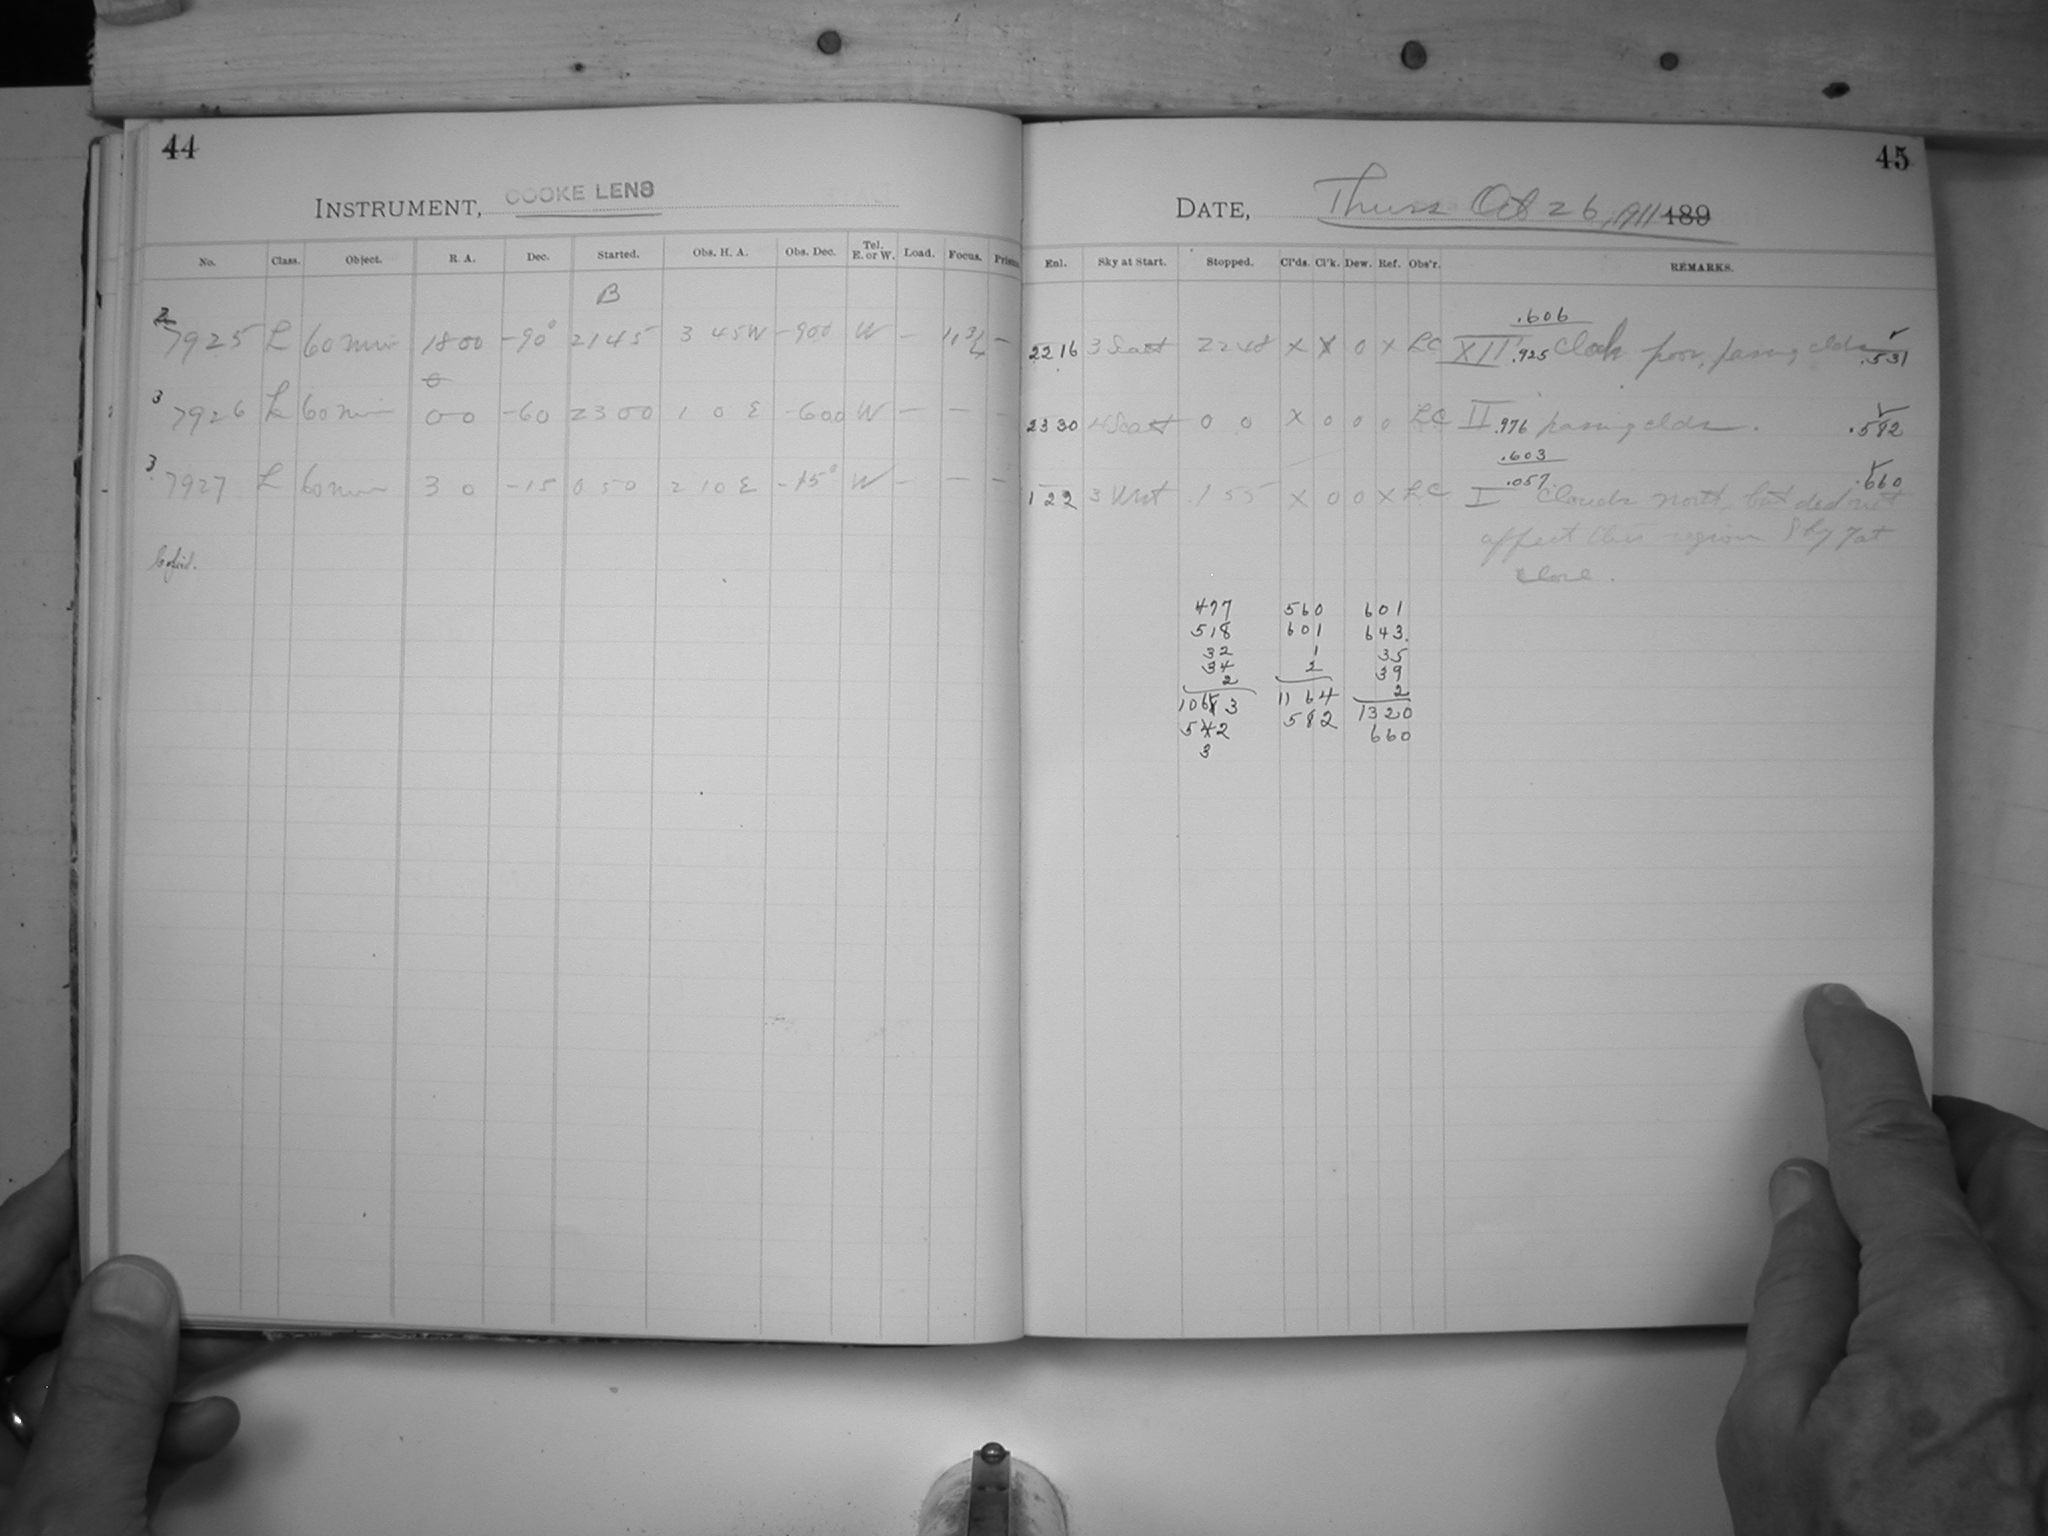 44
INSTRUMENT, COOKE LENS
No. Class. Object. R. A. Dec. Started. Obs. H. A. Obs. Dec. Tel. E. or W. Load. Focus. Prism
B
2
7925 L 60 min 18 00 -90° 21 45 3 45 W -90 0 W — —
3
7926 L 60 min 0 0 -60 23 00 1 0 E -60 0 W — — —
3
7927 L 60 min 3 0 -15 0 50 2 10 E -15° W — — —
45
DATE, Thurs Oct 26, 1911 189
Enl. Sky at Start. Stopped. Cl'ds. Cl'k. Dew. Ref. Obs'r. REMARKS.
.606
22 16 3 East 22 48 X X 0 X LC XII .925 Clock poor, passing clds .531
23 30 4 East 0 0 X 0 0 0 LC II .976 passing clds. .582
.603
1 22 3 West 1 55 X 0 0 X LC I .057 Clouds north, but did not .660
affect this region Sky 7 at
close.
477 560 601
518 601 643
32 1 35
34 2 39
2 2
1164 1320
582 660
3